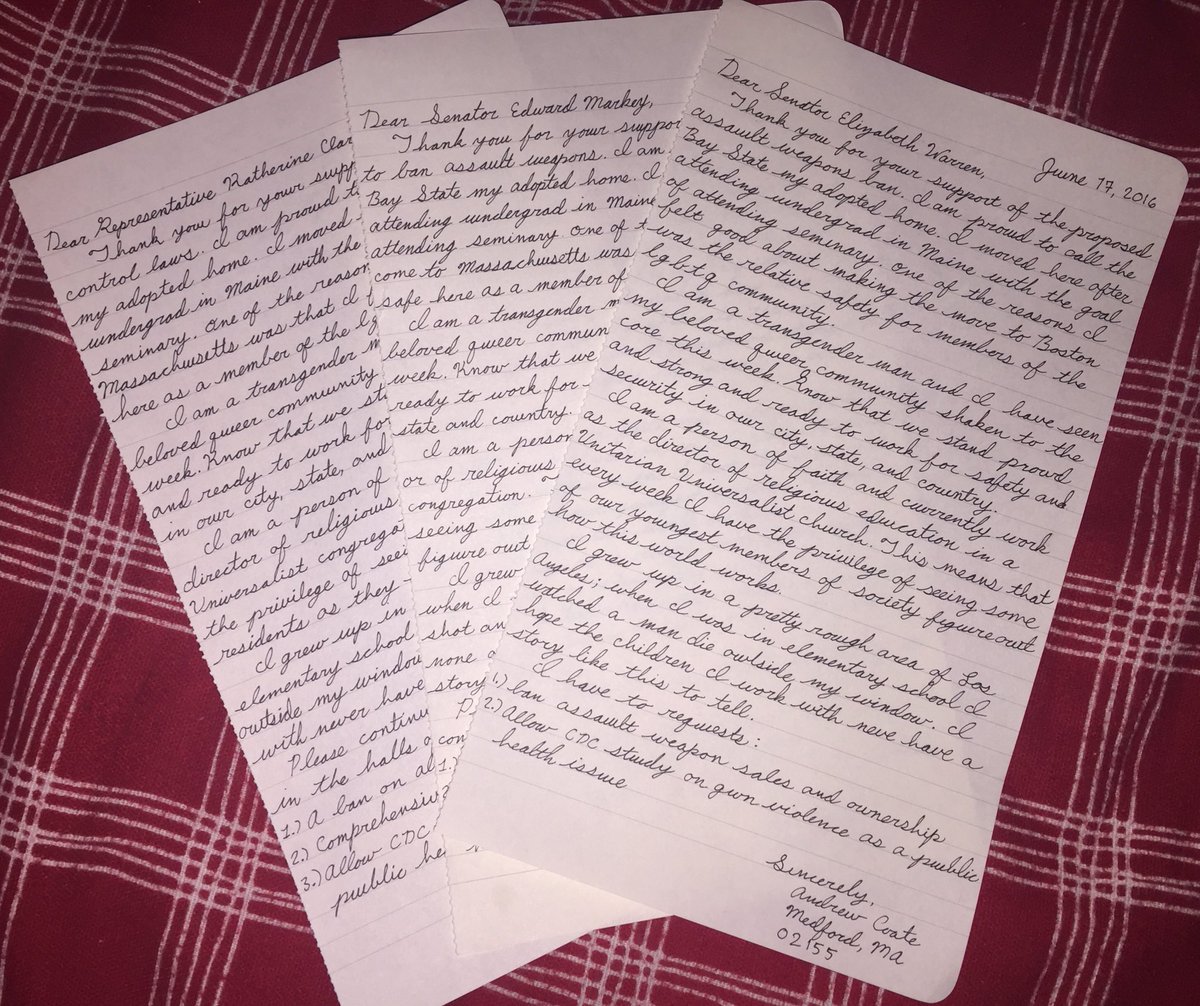 Dear Representative Katherine Clar
Thank you for your supp
control laws. I am proud t
my adopted home. I moved
undergrad in Maine with the
seminary. One of the reason
Massachusetts was that I
here as a member of the lg
I am a transgender m
beloved queer community
week. Know that we st
and ready to work for
in our city, state, and
I am a person of
director of religious
Universalist congrega
the privilege of see
residents as they
I grew up in
elementary school
outside my window
with never have
Please continue
in the halls o
1.) A ban on al
2.) Comprehensiv
3.) Allow CDC
public he
Dear Senator Edward Markey,
Thank you for your suppor
to ban assault weapons. I am
Bay State my adopted home. I
attending undergrad in Maine
attending seminary. One of t
come to Massachusetts was
safe here as a member of
I am a transgender m
beloved queer commun
week. Know that we
ready to work for
state and country.
I am a person
or of religious
congregation.
seeing some
figure out
I grew
when I
shot an
none o
story
P
con
1.)
2
June 17, 2016
Dear Senator Elizabeth Warren,
Thank you for your support of the proposed
assault weapons ban. I am proud to call the
Bay State my adopted home. I moved here after
attending undergrad in Maine with the goal
of attending seminary. One of the reasons I
felt good about making the move to Boston
was the relative safety for members of the
lgbtq community.
I am a transgender man and I have seen
my beloved queer community shaken to the
core this week. Know that we stand proud
and strong and ready to work for safety and
security in our city, state, and country.
I am a person of faith and currently work
as the director of religious education in a
Unitarian Universalist church. This means that
every week I have the privilege of seeing some
of our youngest members of society figure out
how this world works.
I grew up in a pretty rough area of Los
Angeles; when I was in elementary school I
watched a man die outside my window. I
hope the children I work with neve have a
story like this to tell.
I have to requests:
1.) ban assault weapon sales and ownership
2.) Allow CDC study on gun violence as a public
health issue
Sincerely,
Andrew Coate
Medford, MA
02155